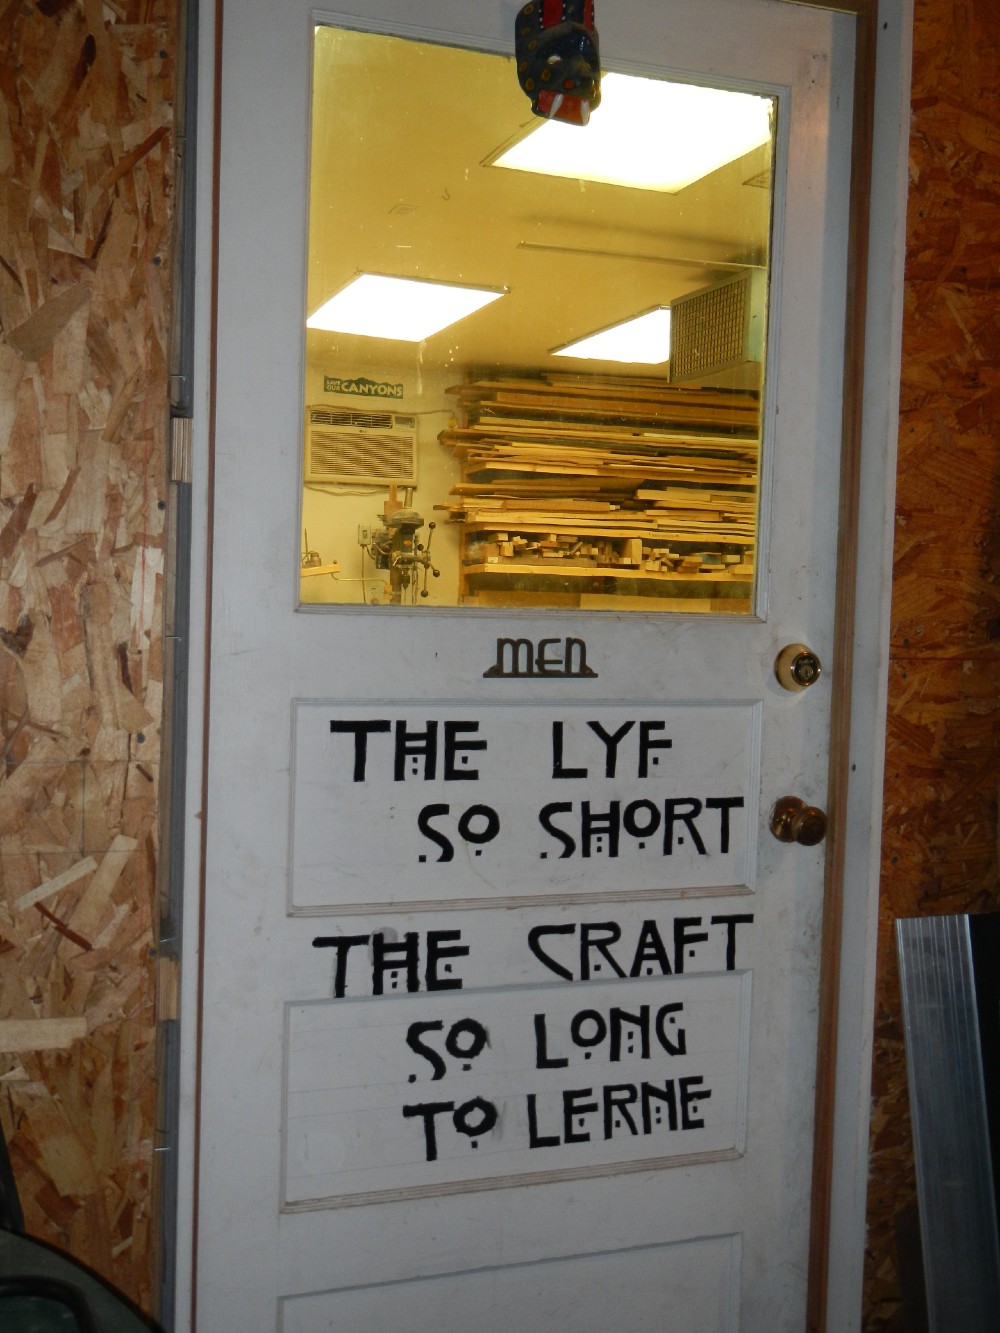 SAVE OUR CANYONS
MEN
THE LYF
SO SHORT
THE CRAFT
SO LONG
TO LERNE